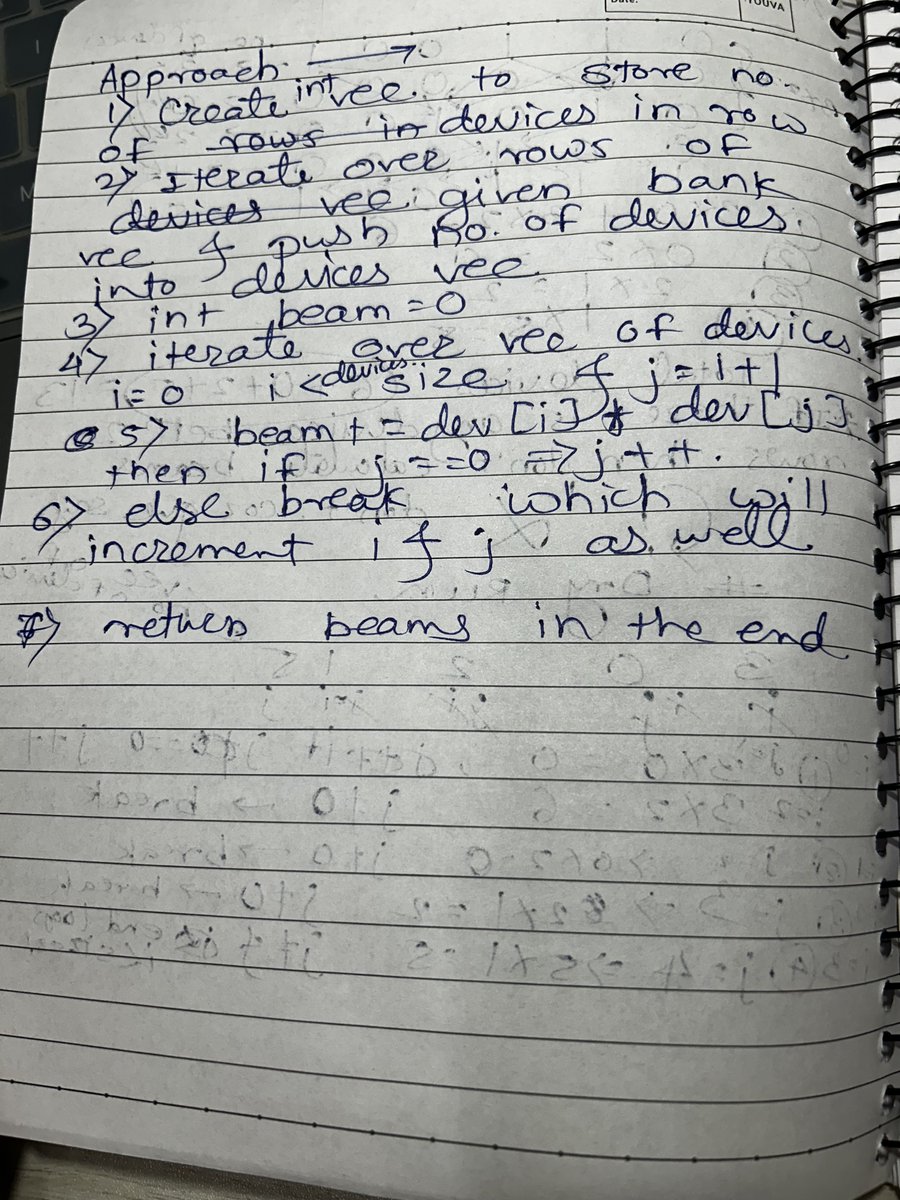 Date:
YOUVA
Approach →
1) Create int vec. to store no.
of rows in devices in row
2) Iterate over rows of
devices vec. given bank
vec & push no. of devices.
into devices vec
3) int beam = 0
4) iterate over vec of devices
i = 0 i < devices.size & j = i+1
5) beam += dev[i] * dev[j]
then if j == 0 => j++.
6) else break which will
increment i & j as well
7) return beams in the end